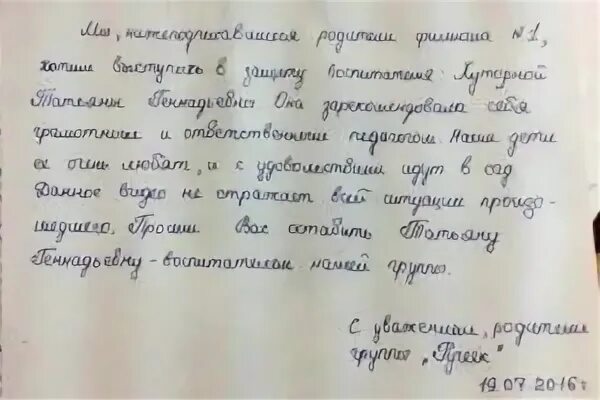 Мы, нижеподписавшиеся родители филиала №1,
хотим выступить в защиту воспитателя: Хуторной
Татьяны Геннадьевны Она зарекомендовала себя
грамотным и ответственным педагогом. Наши дети
её очень любят, и с удовольствием идут в сад
Данное видео не отражает всей ситуации произо-
шедшего. Просим Вас оставить Татьяну
Геннадьевну - воспитателем нашей группы.
С уважением, родители
группы „Лучик"
19.07.2016г